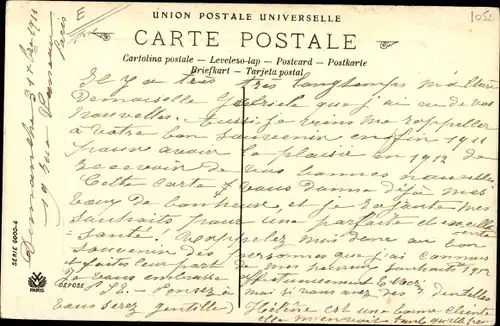 UNION POSTALE UNIVERSELLE
E
1052
CARTE POSTALE
Cartolina postale — Levelezo-lap — Postcard — Postkarte
Briefkart — Tarjeta postal
Il y a très très longtemps ma chère
Demoiselle que j'ai eu de vos
nouvelles. Aussi je viens me rappeller
à votre bon souvenir en fin 1911
pour avoir le plaisir en 1912 de
recevoir de vos bonnes nouvelles
Cette carte vous donne déjà mes
vœux de bonheur et je rejante mes
souhaits pour une parfaite et excellente
santé. Rappelez moi donc au bon
souvenir des personnes que j'ai connues
et faites leur part de mes souhaits 1912
Je vous embrasse affectueusement
P.S. - Pensez à moi si vous avez des dentelles
vous serez gentille) Hélène est une bonne cliente
elle m'envoie
Dimanche 31 Xbre 1911
19 rue
Paris
SERIE 6000-4
PARIS
DEPOSE